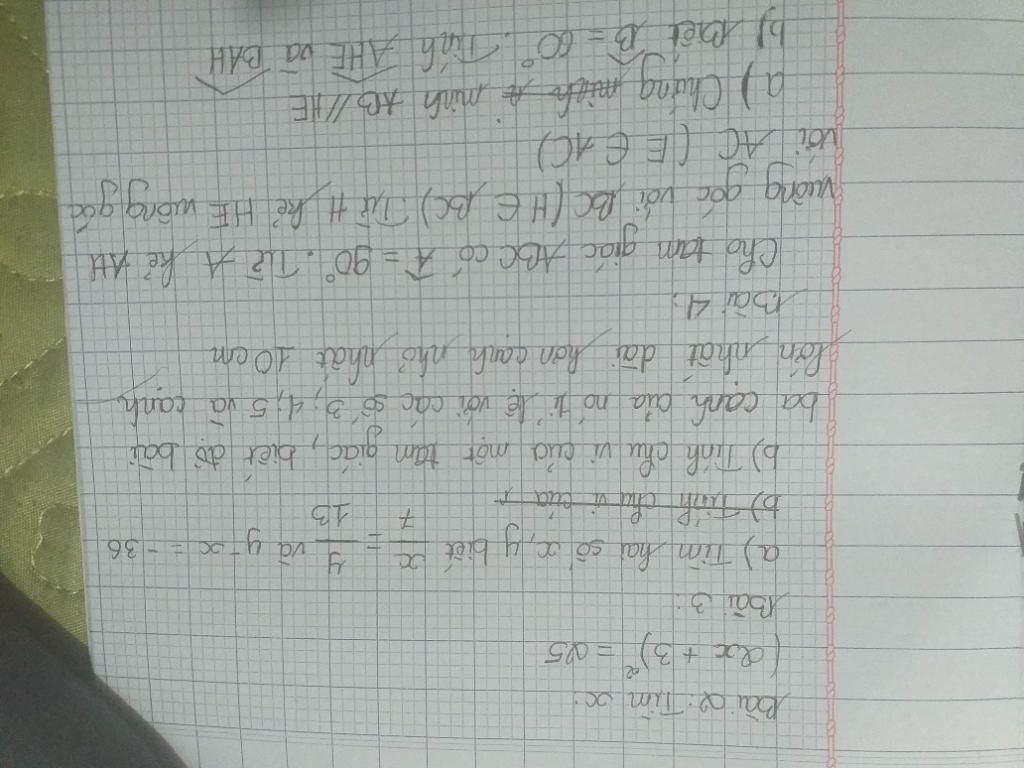 Bài 2: Tìm x:
(2x + 3)² = 25
Bài 3:
a) Tìm hai số x, y biết x/7 = y/13 và y - x = -36
b) Tính chu vi của
b) Tính chu vi của một tam giác, biết độ bài
ba cạnh của nó tỉ lệ với các số 3; 4; 5 và cạnh
lớn nhất dài hơn cạnh nhỏ nhất 10cm
Bài 4:
Cho tam giác ABC có Â = 90°. Từ A kẻ AH
vuông góc với BC (H ∈ BC) Từ H kẻ HE vuông góc
với AC (E ∈ AC)
a) Chứng minh AB // HE
b) Biết B̂ = 60°. Tính AHE và BAH